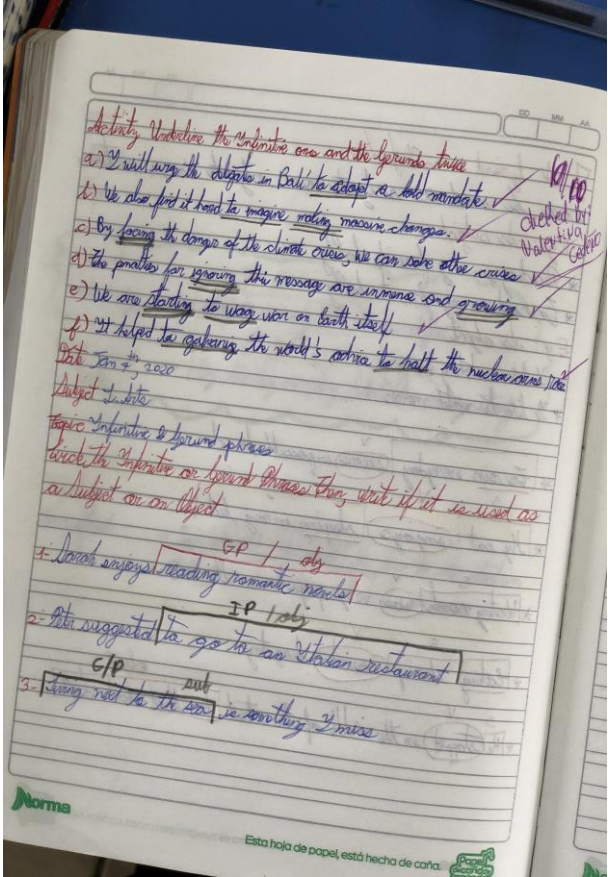 DD MM AA
Activity Underline the Infinitive once and the Gerunds twice
10/10
checked by:
Valentina
a) I will urge the delegates in Bali to adopt a bold mandate.
b) We also find it hard to imagine making massive changes.
c) By facing the danger of the climate crisis, we can solve other crises
d) The penalties for ignoring this message are inmense and growing
e) We are starting to wage war on Earth itself
f) It helped to galvanize the world's to halt the nuclear arms race
Date Jan 7th, 2020
Subject
Topic Infinitive & Gerund phrases
Circle the Infinitive or Gerund Phrases then, write if it is used as
a Subject or an Object
GP / obj
1- Sarah enjoys reading romantic novels
IP / obj
2- Peter suggested to go to an Italian restaurant
G/P sub
3- living next to the sea is something I miss
Norma
Esta hoja de papel, está hecha de caña.